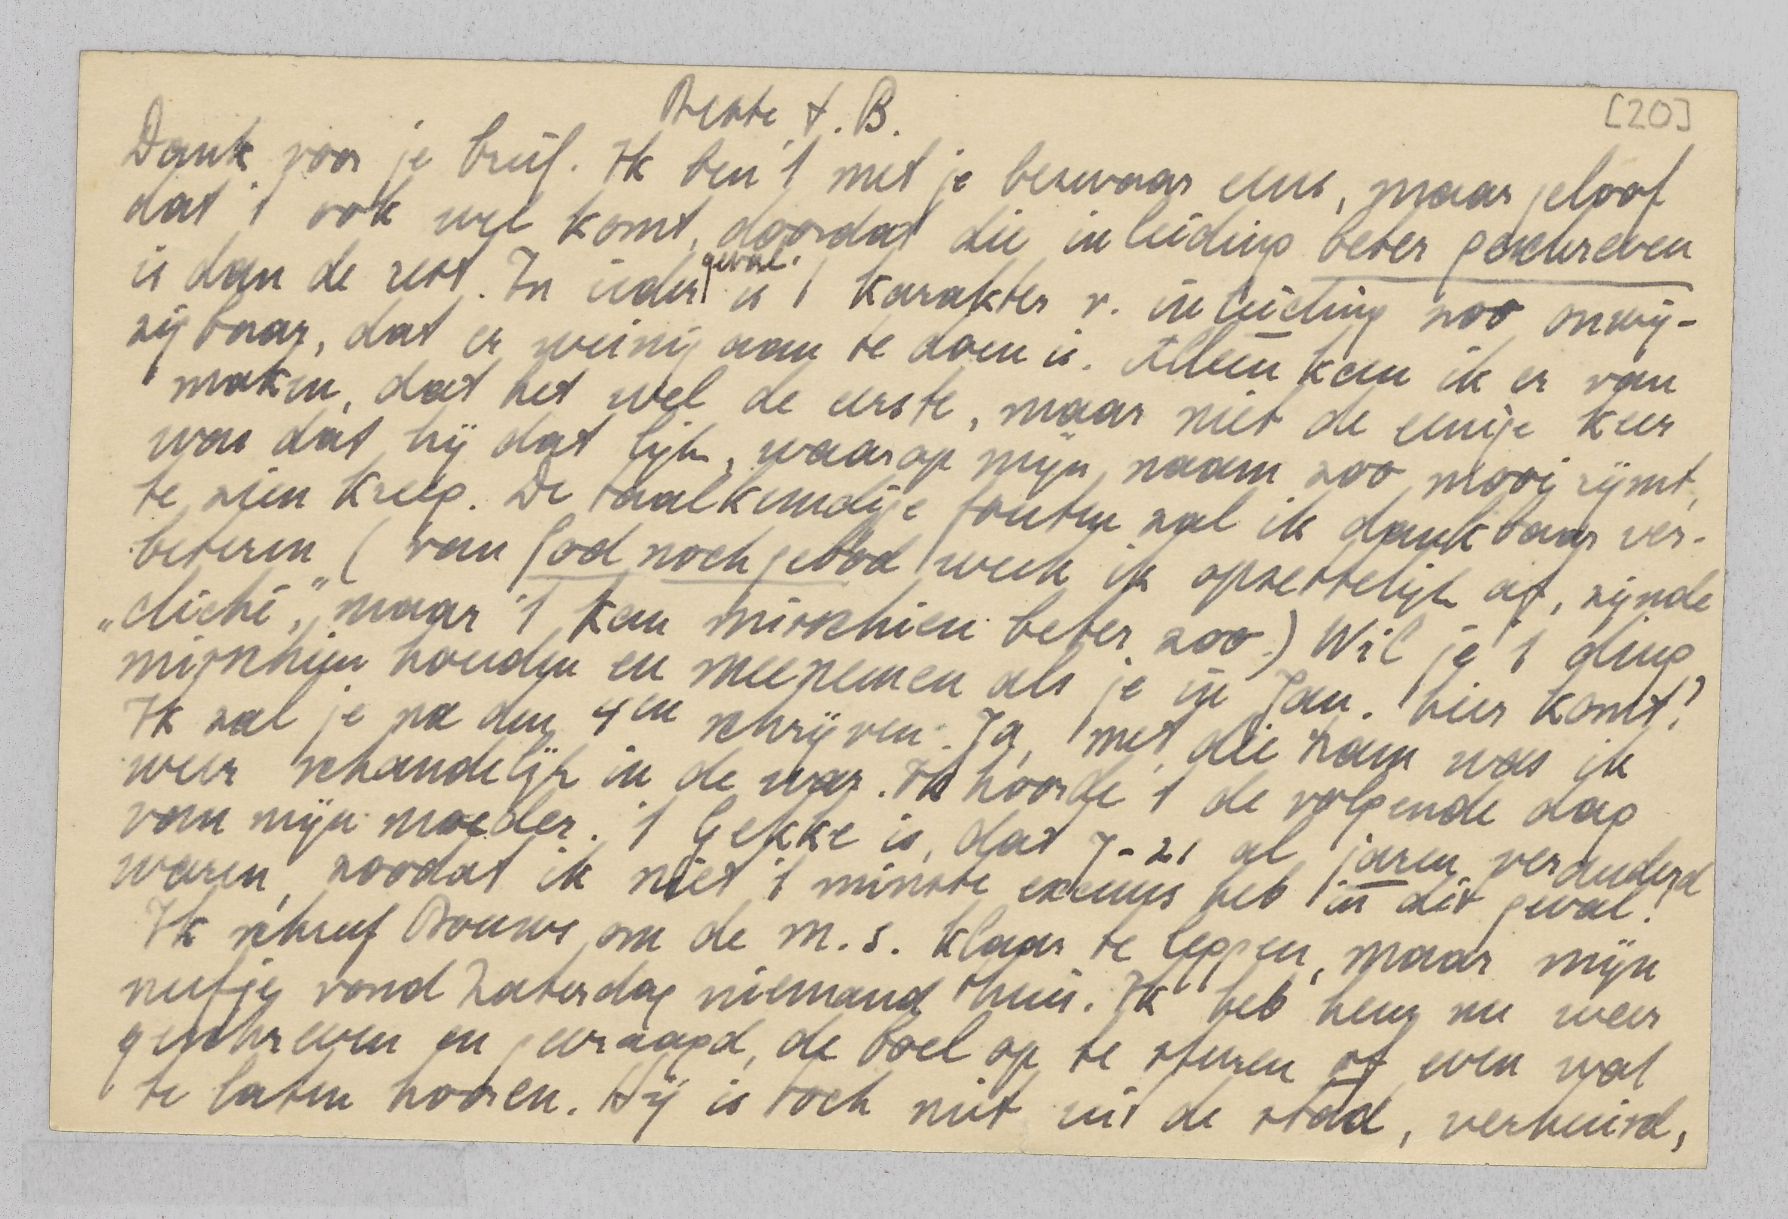 Beste v. B.
[20]
Dank voor je brief. Ik ben 't met je bezwaar eens, maar geloof
dat 't ook wel komt, doordat die inleiding beter geschreven
is dan de rest. In ieder geval is 't karakter v. inleiding zoo onwij-
zigbaar, dat er weinig aan te doen is. Alleen kan ik er van
maken, dat het wel de eerste, maar niet de eenige keer
was dat hij dat lijk, waarop mijn naam zoo mooi rijmt,
te zien kreeg. De taalkundige fouten zal ik dankbaar ver-
beteren (van God noch gebod week ik opzettelijk af, zijnde
„cliché", maar 't kan misschien beter zoo.) Wil je 't ding
misschien houden en meenemen als je in Jan. hier komt?
Ik zal je na den 4en schrijven. Ja, met die tram was ik
weer schandelijk in de war. Ik hoorde 't de volgende dag
van mijn moeder. 't Gekke is, dat 7-21 al jaren veranderd
waren, zoodat ik niet 't minste excuus heb in dit geval!
Ik schreef Bouws om de m.s. klaar te leggen, maar mijn
neefje vond Zaterdag niemand thuis. Ik heb hem nu weer
geschreven en gevraagd, de boel op te sturen of even wat
te laten hooren. Hij is toch niet uit de stad, verhuisd,